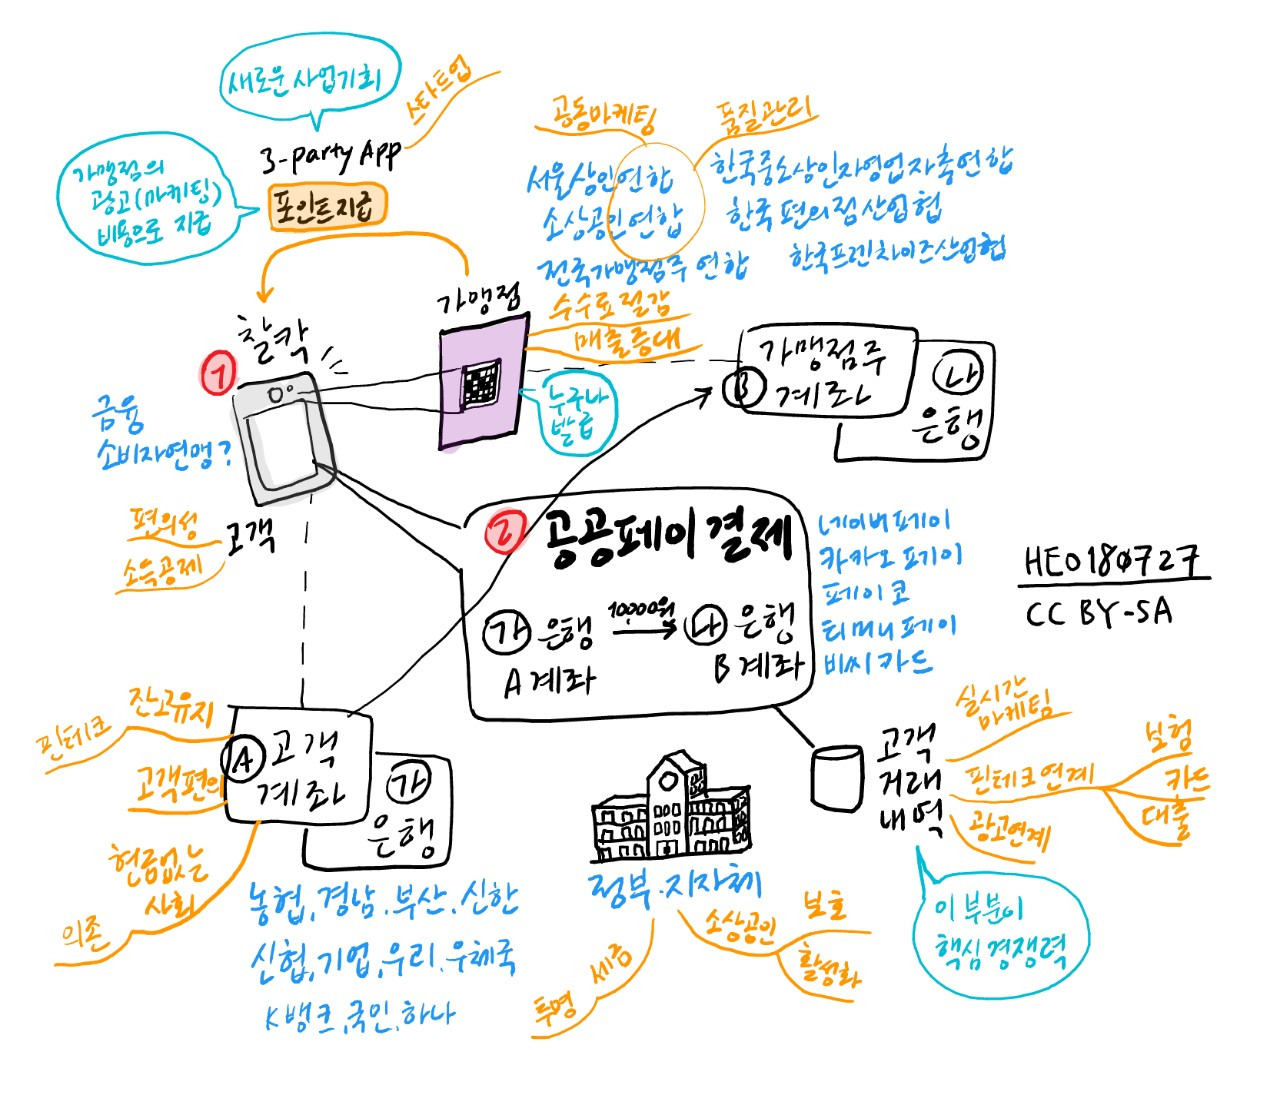 새로운 사업기회
스타트업
3-party App
가맹점의
광고(마케팅)
비용으로 지급
포인트지급
공동마케팅
품질관리
서울상인연합
소상공인연합
전국가맹점주 연합
한국중소상인자영업자총연합
한국 편의점 산업협
한국프렌차이즈산업협
가맹점
수수료 절감
매출증대
누구나
발급
찰칵
1
금융
소비자연맹?
고객
편의성
소득공제
가맹점주
계좌
B
나
은행
2 공공페이 결제
가 은행 10,000원 나 은행
A 계좌 B 계좌
네이버페이
카카오페이
페이코
티머니페이
비씨카드
HEO180727
CC BY-SA
잔고유지
핀테크
고객편의
현금없는
사회
의존
A 고객
계좌
가
은행
농협, 경남, 부산, 신한
신협, 기업, 우리, 우체국
K뱅크, 국민, 하나
정부·지자체
세금
투명
소상공인
보호
활성화
고객
거래
내역
실시간
마케팅
핀테크연계
보험
카드
대출
광고연계
이 부분이
핵심 경쟁력